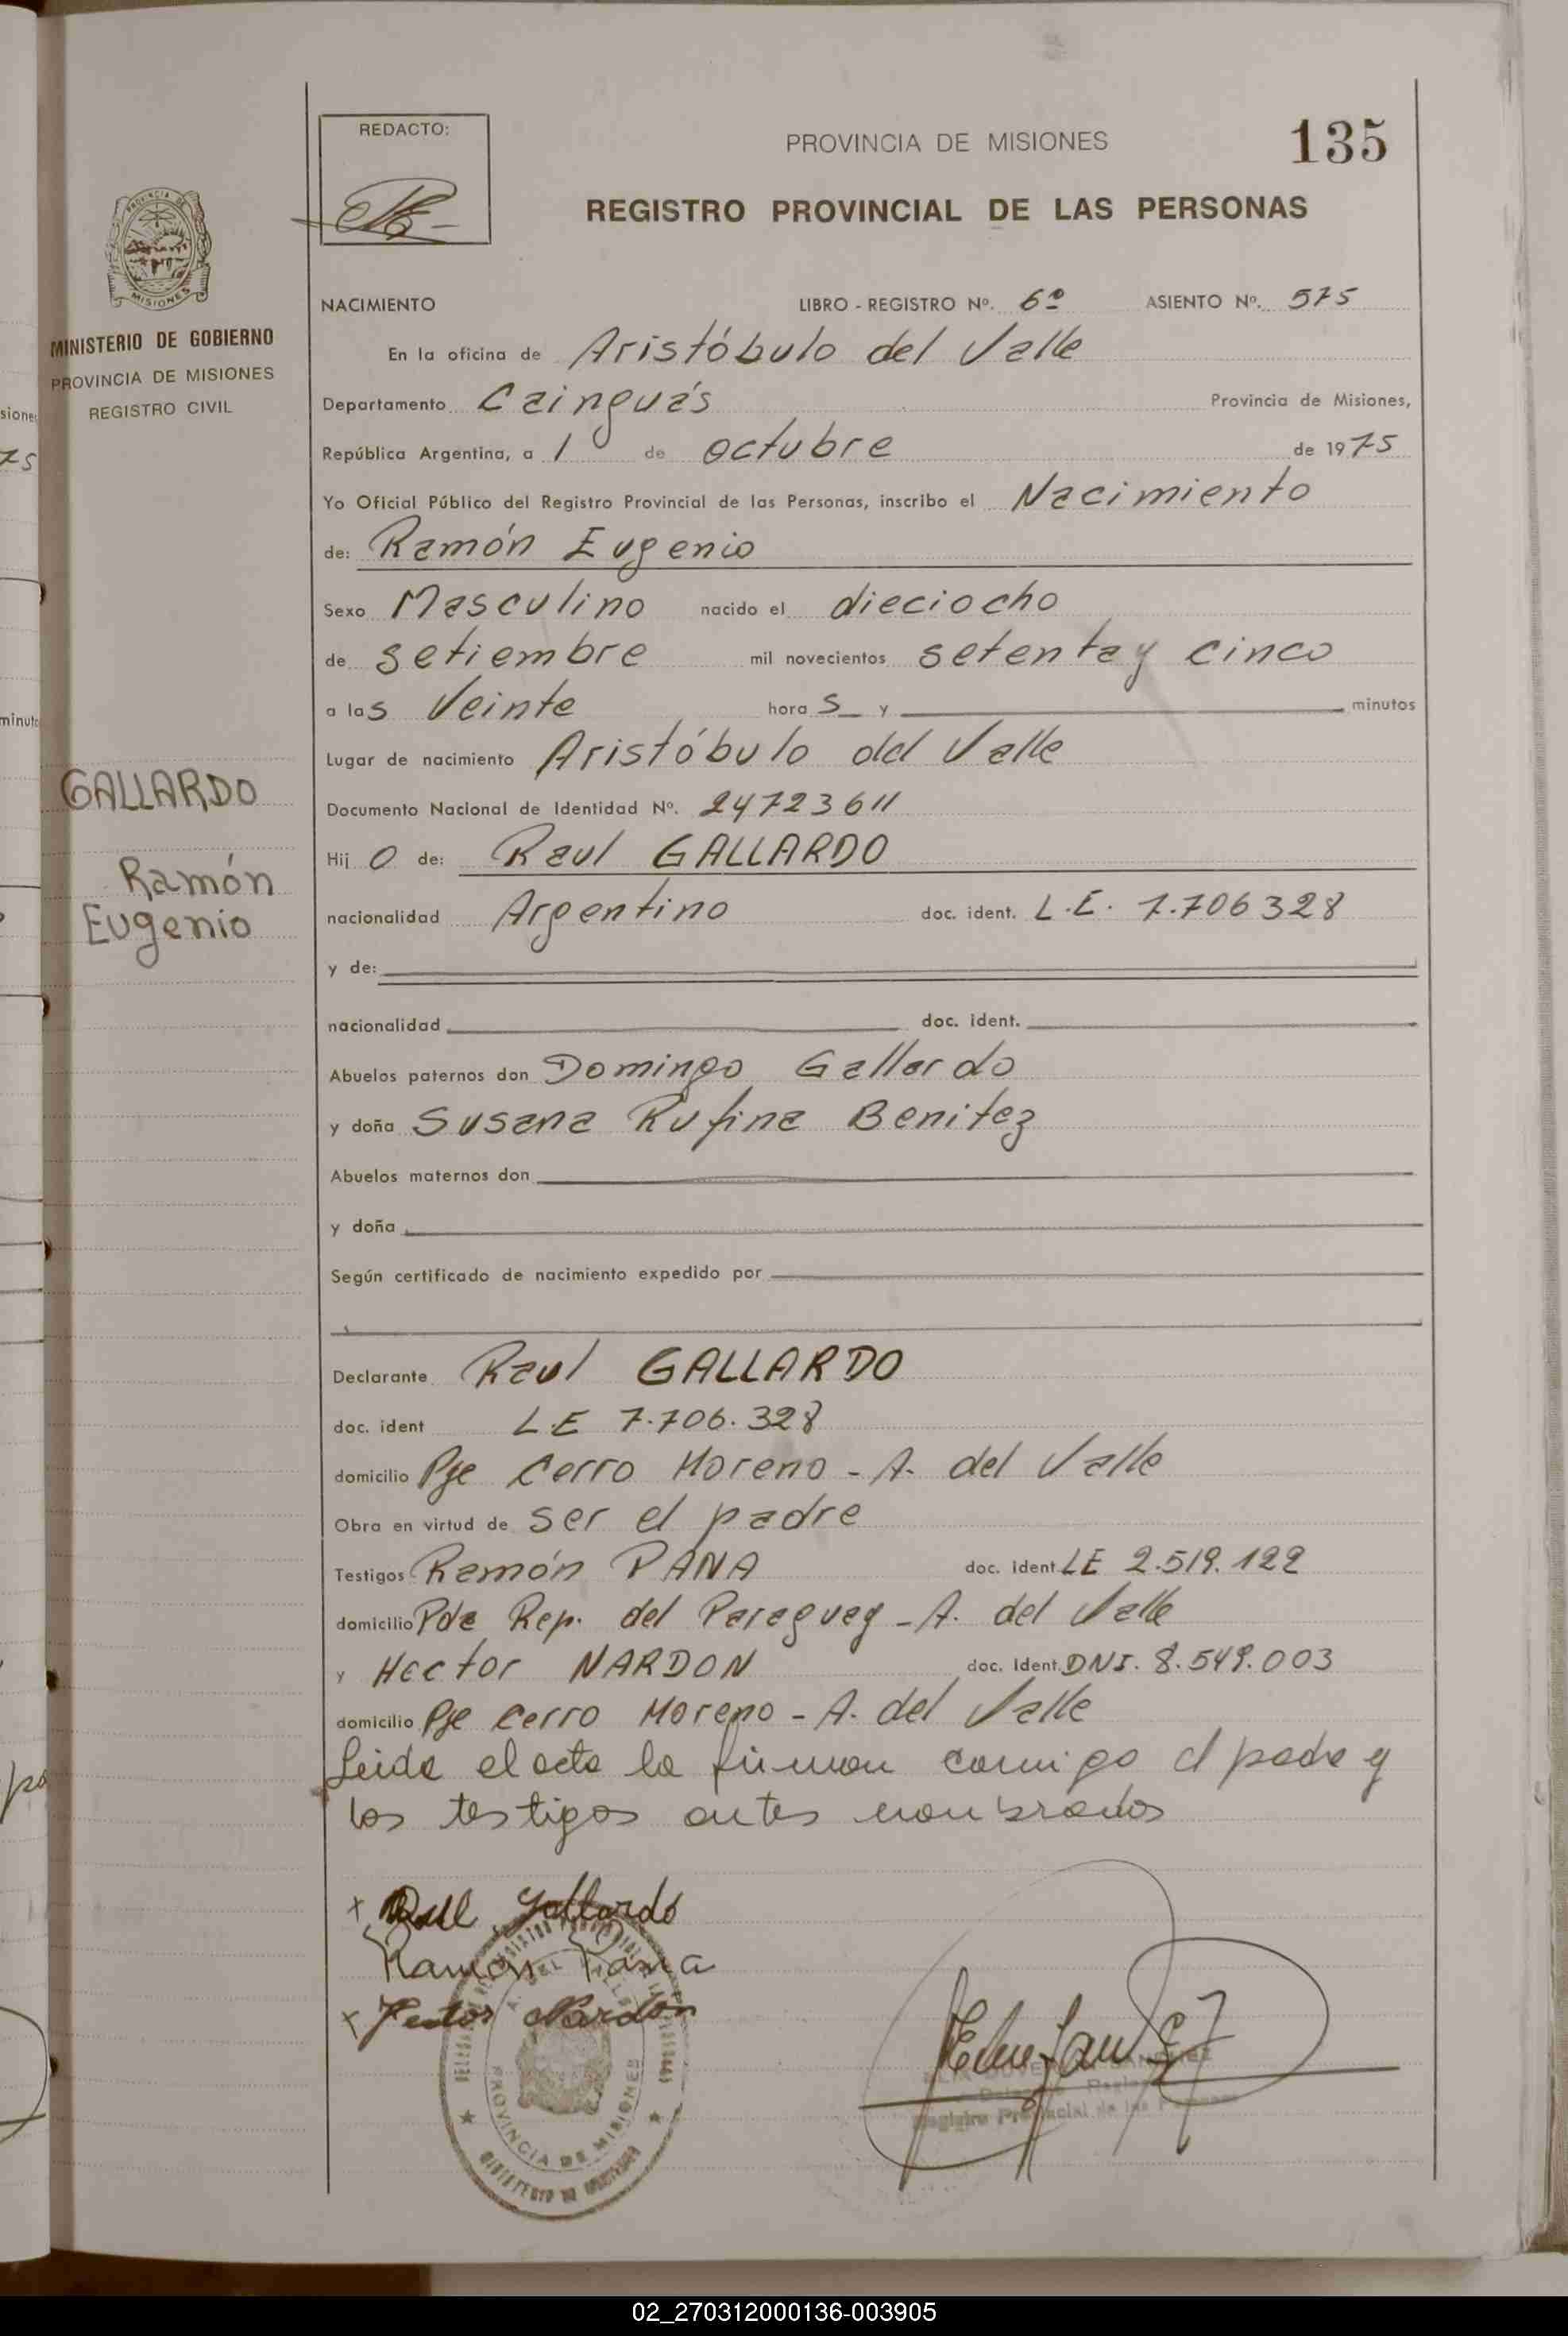 REDACTO:
PROVINCIA DE MISIONES
135
REGISTRO PROVINCIAL DE LAS PERSONAS
MISIONES
MINISTERIO DE GOBIERNO
PROVINCIA DE MISIONES
REGISTRO CIVIL
GALLARDO
Ramón
Eugenio
NACIMIENTO LIBRO - REGISTRO Nº. 6º ASIENTO Nº. 575
En la oficina de Aristóbulo del Valle
Departamento Cainguás Provincia de Misiones,
República Argentina, a 1 de octubre de 1975
Yo Oficial Público del Registro Provincial de las Personas, inscribo el Nacimiento
de: Ramón Eugenio
Sexo Masculino nacido el dieciocho
de setiembre mil novecientos setenta y cinco
a las Veinte horas y minutos
Lugar de nacimiento Aristóbulo del Valle
Documento Nacional de Identidad Nº. 24723611
Hijo de: Raul GALLARDO
nacionalidad Argentino doc. ident. L.E. 7.706328
y de:
nacionalidad doc. ident.
Abuelos paternos don Domingo Gallardo
y doña Susana Rufina Benitez
Abuelos maternos don
y doña
Según certificado de nacimiento expedido por
Declarante Raul GALLARDO
doc. ident L.E 7.706.328
domicilio Pje Cerro Moreno - A. del Valle
Obra en virtud de ser el padre
Testigos Ramón PANA doc. ident LE 2.519.122
domicilio Pda Rep. del Paraguay - A. del Valle
y Hector NARDON doc. Ident. DNI. 8.549.003
domicilio Pje Cerro Moreno - A. del Valle
Leida el acta la firman comigo el padre y
los testigos antes nombrados
x Raul Gallardo
Ramon Pana
x Hector Nardon
PROVINCIA DE MISIONES
Registro Provincial de las Personas
02_270312000136-003905